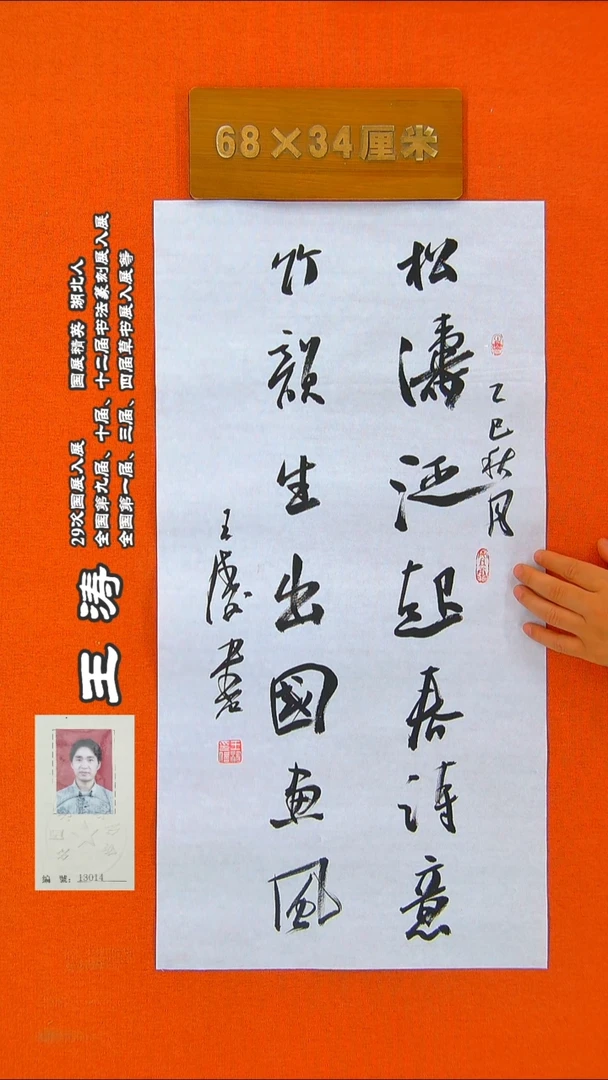 68×34厘米
乙巳秋月
松濤泛起春诗意
竹韻生出國画风
王涛书
29次国展入展 国展精英 湖北人
全国第九届、十届、十二届书法篆刻展入展
全国第一届、三届、四届草书展入展等
王涛
编 號：13014